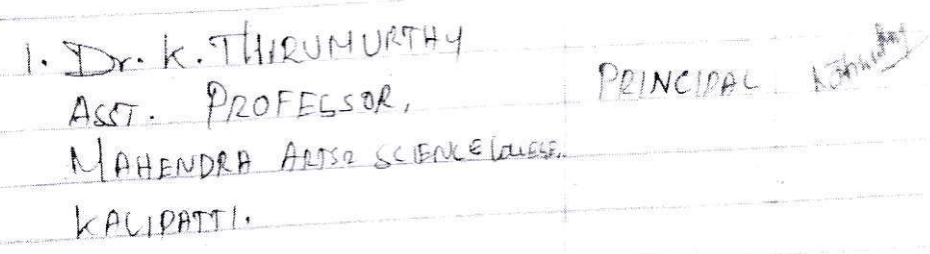 1. Dr. K. THIRUMURTHY
ASST. PROFESSOR,
MAHENDRA ARTS & SCIENCE COLLEGE.
KALIPATTI.
PRINCIPAL